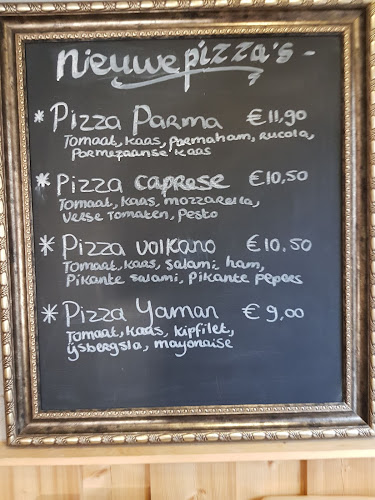 Nieuwe pizza's -
* Pizza Parma €11,90
Tomaat, kaas, parmaham, rucola,
Parmezaanse kaas
* Pizza caprese €10,50
Tomaat, kaas, mozzarella,
Verse tomaten, pesto
* Pizza volkano €10.50
Tomaat, kaas, salami, ham,
Pikante salami, Pikante pepers
* Pizza Yaman €9,00
Tomaat, kaas, kipfilet,
ijsbergsla, mayonaise